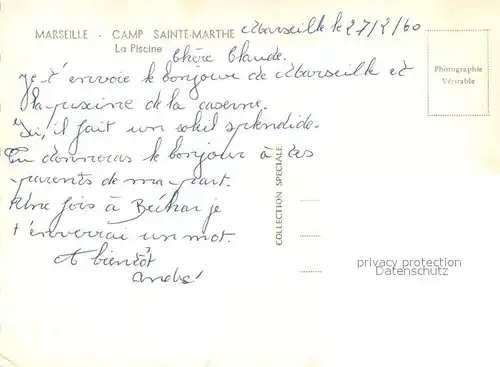 MARSEILLE - CAMP SAINTE-MARTHE
La Piscine
Marseille le 27/2/60
Chère Claude.
Je t'envoie le bonjour de Marseille et
la piscine de la caserne.
Ici, il fait un soleil splendide.
Tu donneras le bonjour à tes
parents de ma part.
Une fois à Béchar je
t'enverrai un mot.
A bientôt
André
Photographie
Véritable
COLLECTION SPECIALE
privacy protection
Datenschutz